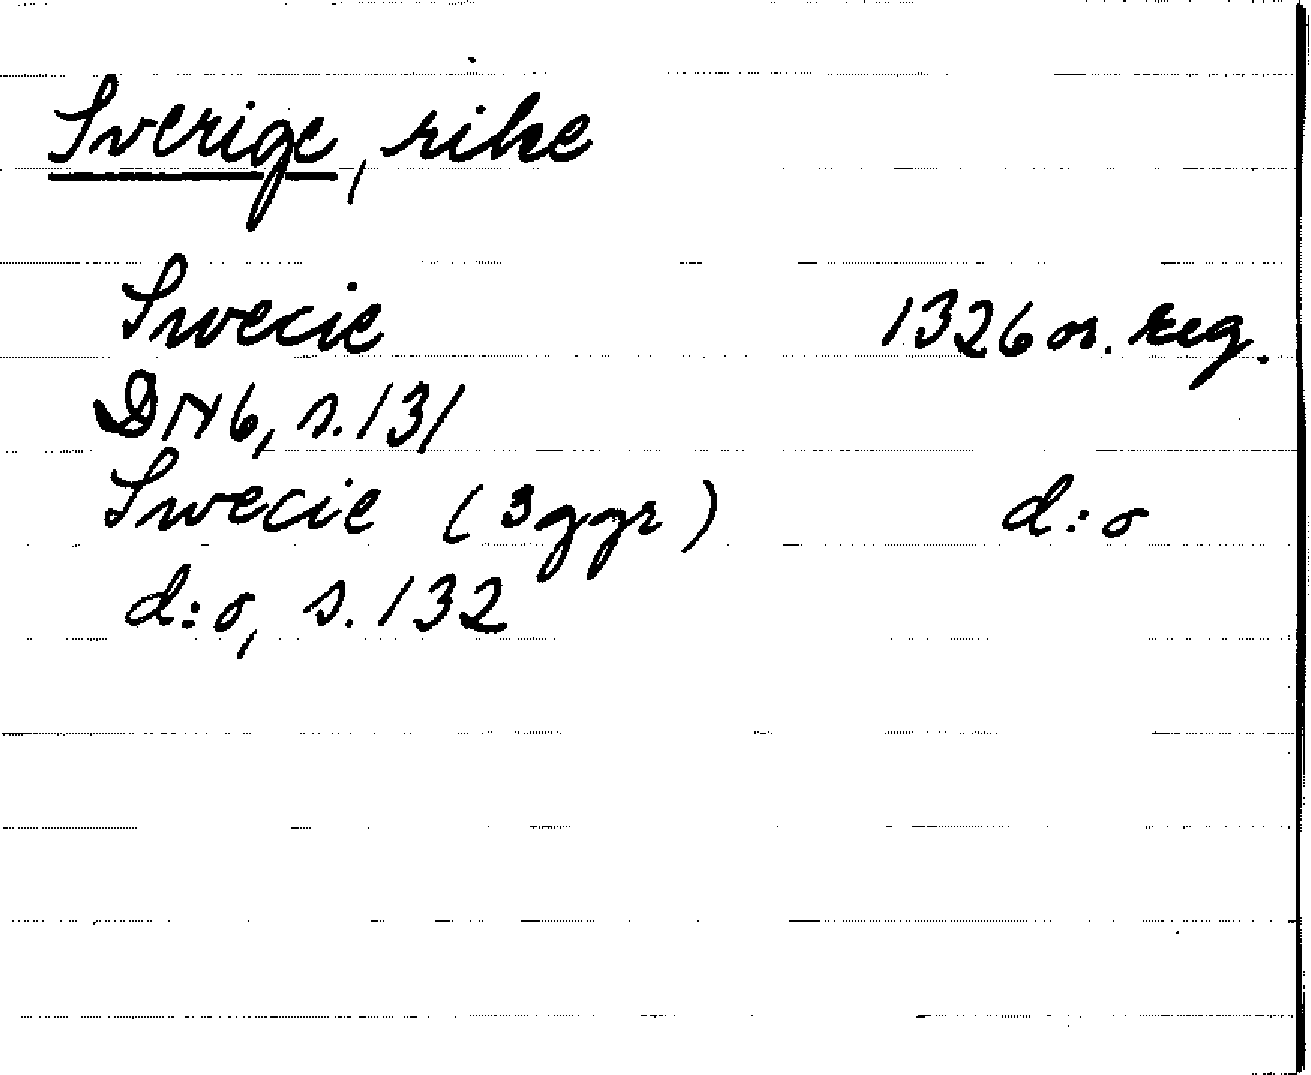 Sverige, rike
Swecie 1326 or. reg.
DN6, s. 131
Swecie (3 ggr) d:o
d:o, s. 132